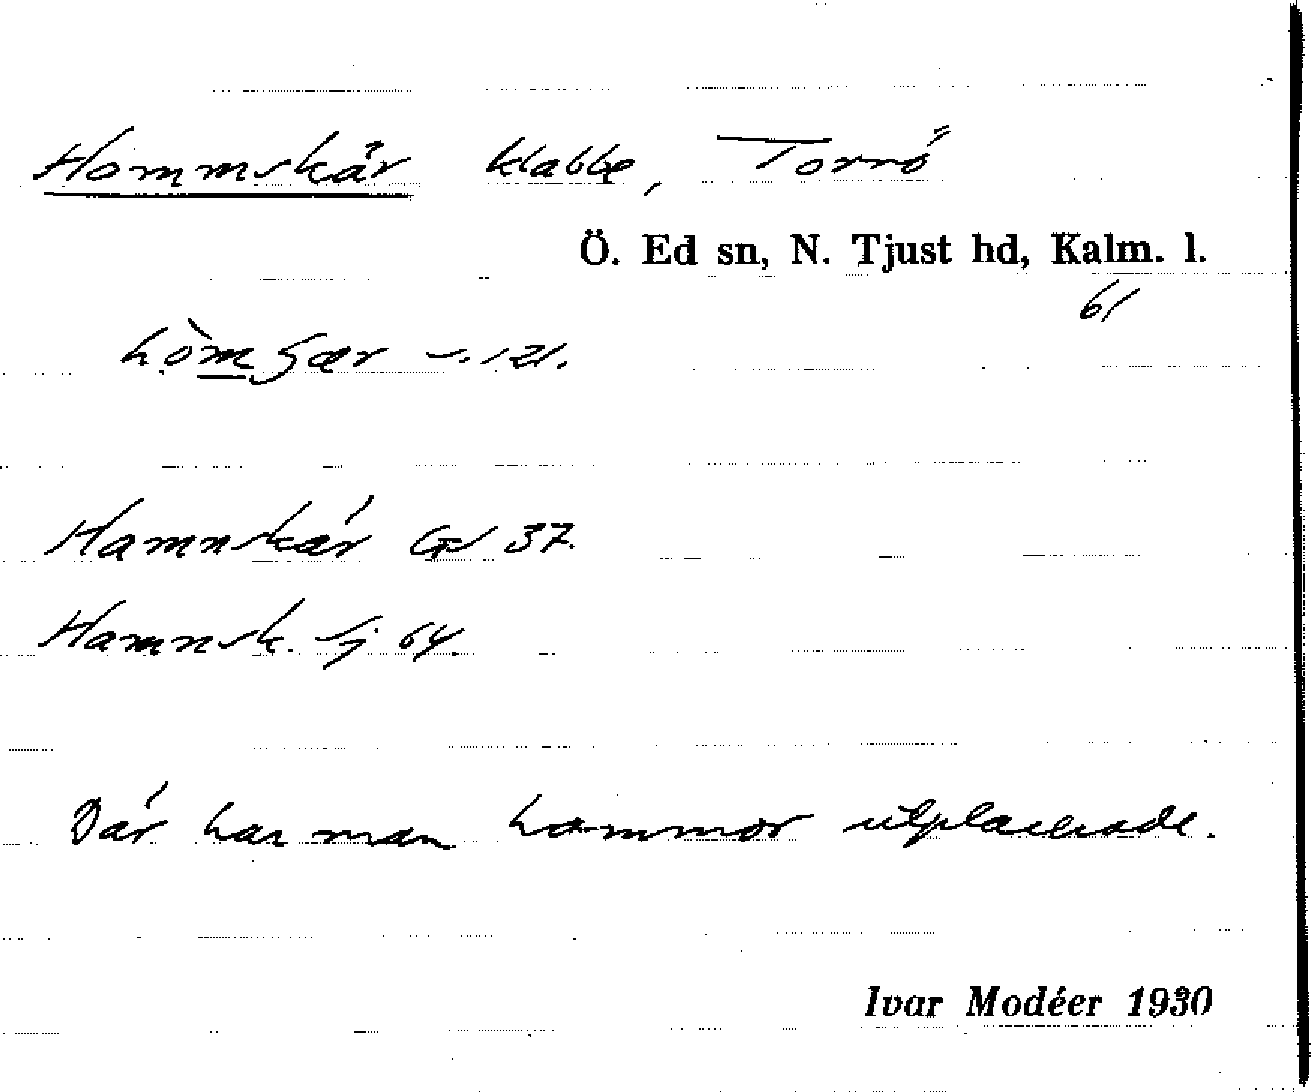 Hommskär klabbe, Torrö
Ö. Ed sn, N. Tjust hd, Kalm. l.
61
Hamnskär GS 37.
Hamnsk. Sj 64.
Där har man hommor utplacerade.
Ivar Modéer 1930